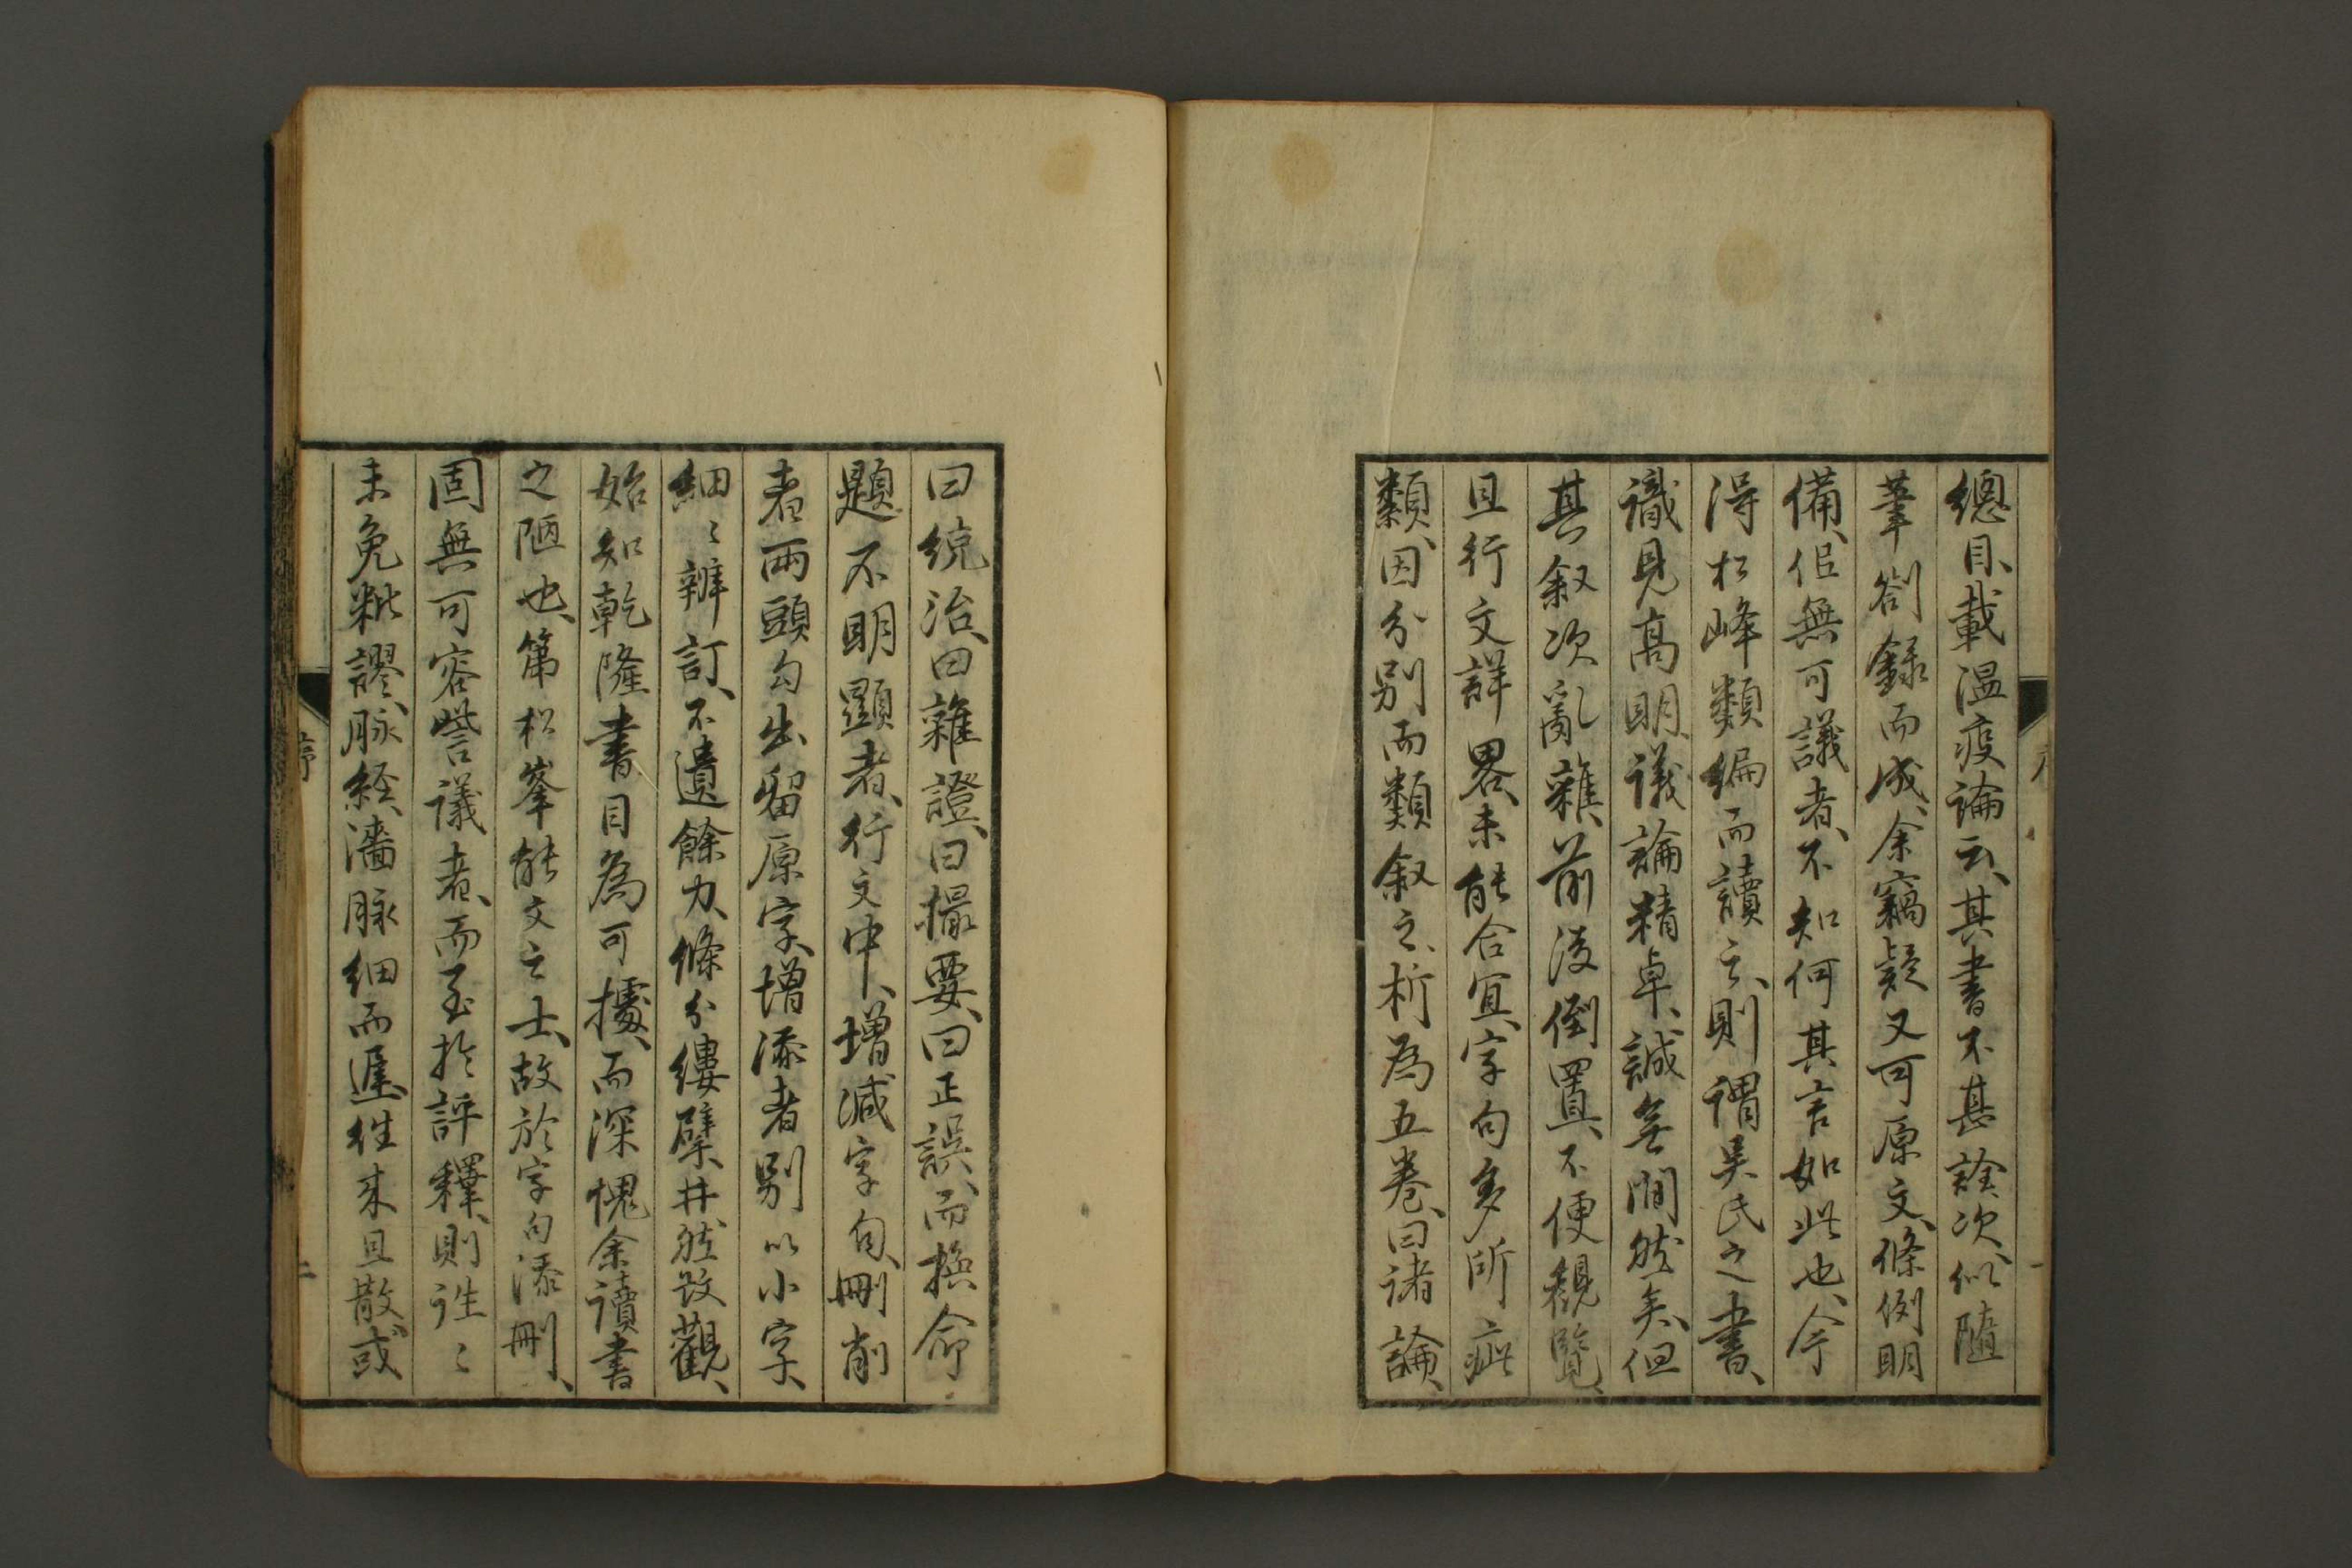 總目、載温疫論云、其書不甚詮次、似隨
筆劄録而成、余竊疑又可原文、條例明
備、似無可議者、不知何其言如此也、今
得松峰類編而讀之、則謂吴氏之書、
識見高明、議論精卓、誠無間然矣、但
其叙次亂雜、前後倒置、不便観覧、
且行文詳畧、未能合宜、字句多所疵
類、因分別而類叙之、析為五巻、曰諸論、
曰統治、曰雜證、曰撮要、曰正誤、而換命
題不明顕者、行文中、増减字句、刪削
者、兩頭勾出、留原字、増添者、別以小字、
細〻辨訂、不遺餘力、條分縷擘、井然改觀、
始知乾隆書目為可據、而深愧余讀書
之陋也、第松峯能文之士、故於字句添刪、
固無可容訾議者、而至於評釋、則往〻
未免粃謬、脉経、濇脉細而遲、往来且散、或
序
二